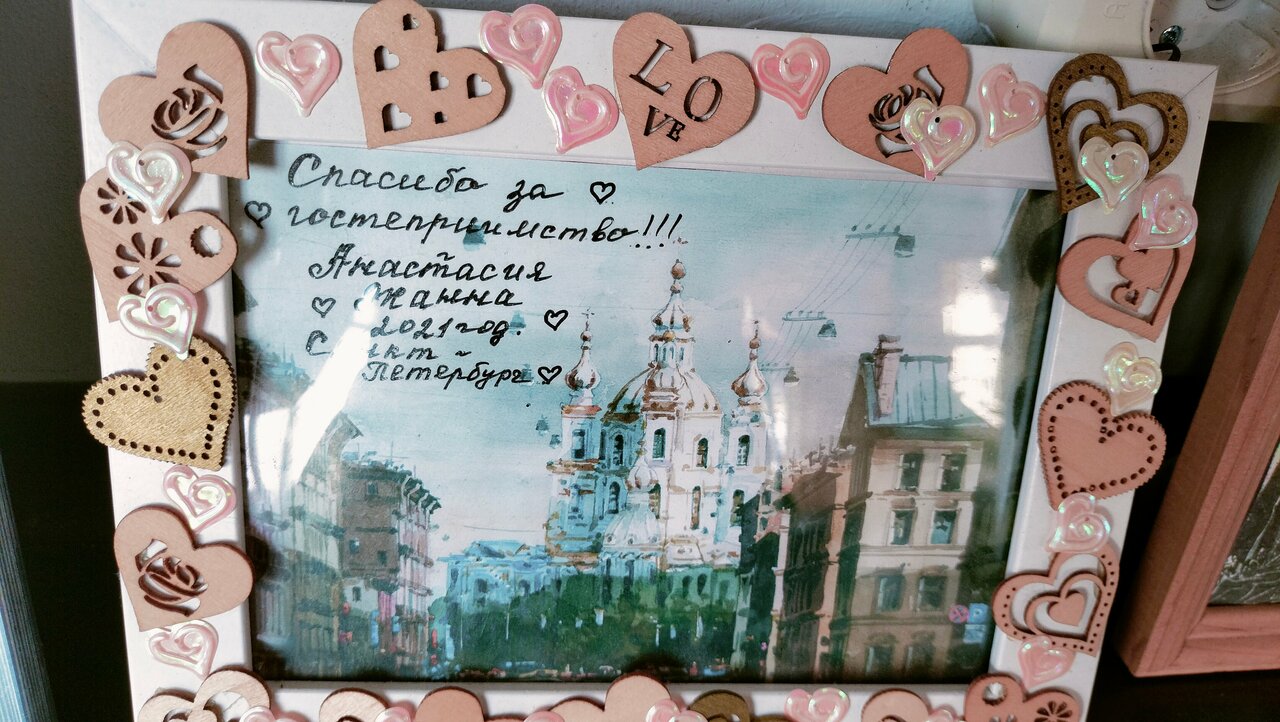 LOVE
Спасибо за
гостеприимство!!!
Анастасия
Жанна
2021 год.
Санкт -
Петербург